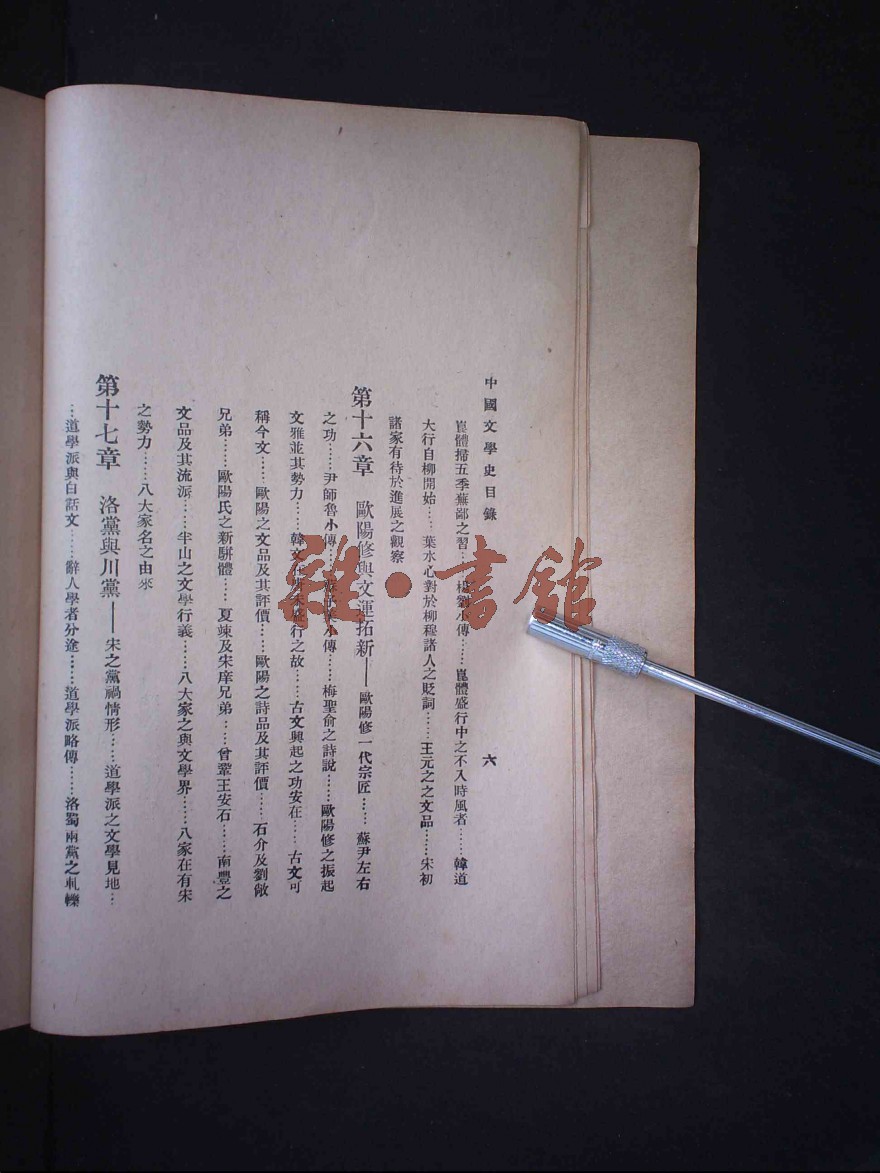 中國文學史目錄
六
崑體掃五季蕪鄙之習……楊劉小傳……崑體盛行中之不入時風者……韓道
大行自柳開始……葉水心對於柳穆諸人之貶詞……王元之之文品……宋初
諸家有待於進展之觀察
第十六章 歐陽修與文運拓新——歐陽修一代宗匠……蘇尹左右
之功……尹師魯小傳……蘇子美小傳……梅聖俞之詩說……歐陽修之振起
文雅並其勢力……韓文在宋盛行之故……古文興起之功安在……古文可
稱今文……歐陽之文品及其評價……歐陽之詩品及其評價……石介及劉敞
兄弟……歐陽氏之新駢體……夏竦及宋庠兄弟……曾鞏王安石……南豐之
文品及其流派……半山之文學行義……八大家之與文學界……八家在有宋
之勢力……八大家名之由來
第十七章 洛黨與川黨——宋之黨禍情形……道學派之文學見地…
…道學派與白話文……辭人學者分途……道學派略傳……洛蜀兩黨之軋轢
雜·書館